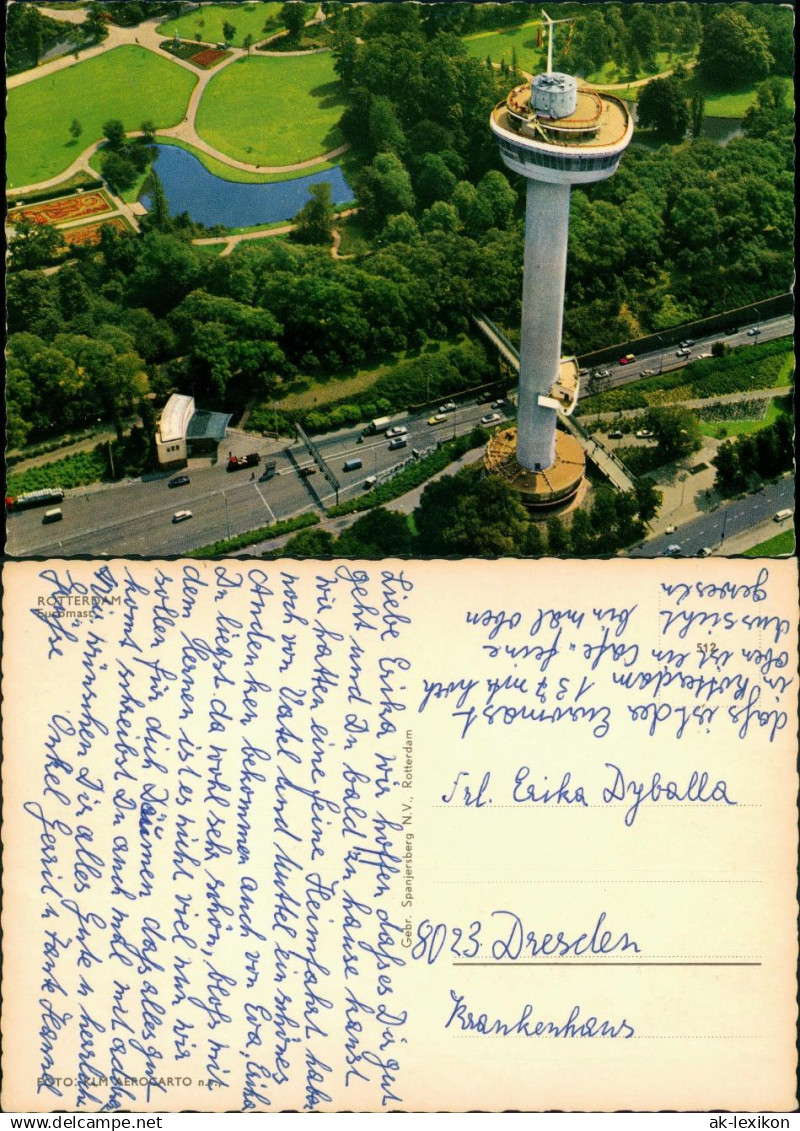 ROTTERDAM
Euromast
Liebe Erika wir hoffen daß es Dir gut
geht und Du bald zu hause kanst
wir hatten eine feine Heimfahrt habe
noch von Vatel und Muttel ein schönes
Andenken bekommen auch von Eva, Erika
Du liegst da wohl sehr schön, bloß mit
dem lernen ist es nicht viel nun wir
sollen für dich Däumen daß alles gut
komt schreibst Du auch mal mit
Wir wünschen Dir alles Gute u herzliche
Grüße Onkel Gerrit u Tante Hannel
FOTO: KLM AEROCARTO n.v.,
Gebr. Spanjersberg N.V., Rotterdam
512
daß ist der Euromast
in Rotterdam 137 mtr hoch
oben ist ein Cafe. feine
Aussicht bin mal oben
gewesen
Frl. Erika Dyballa
8023 Dresden
Krankenhaus
ak-lexikon